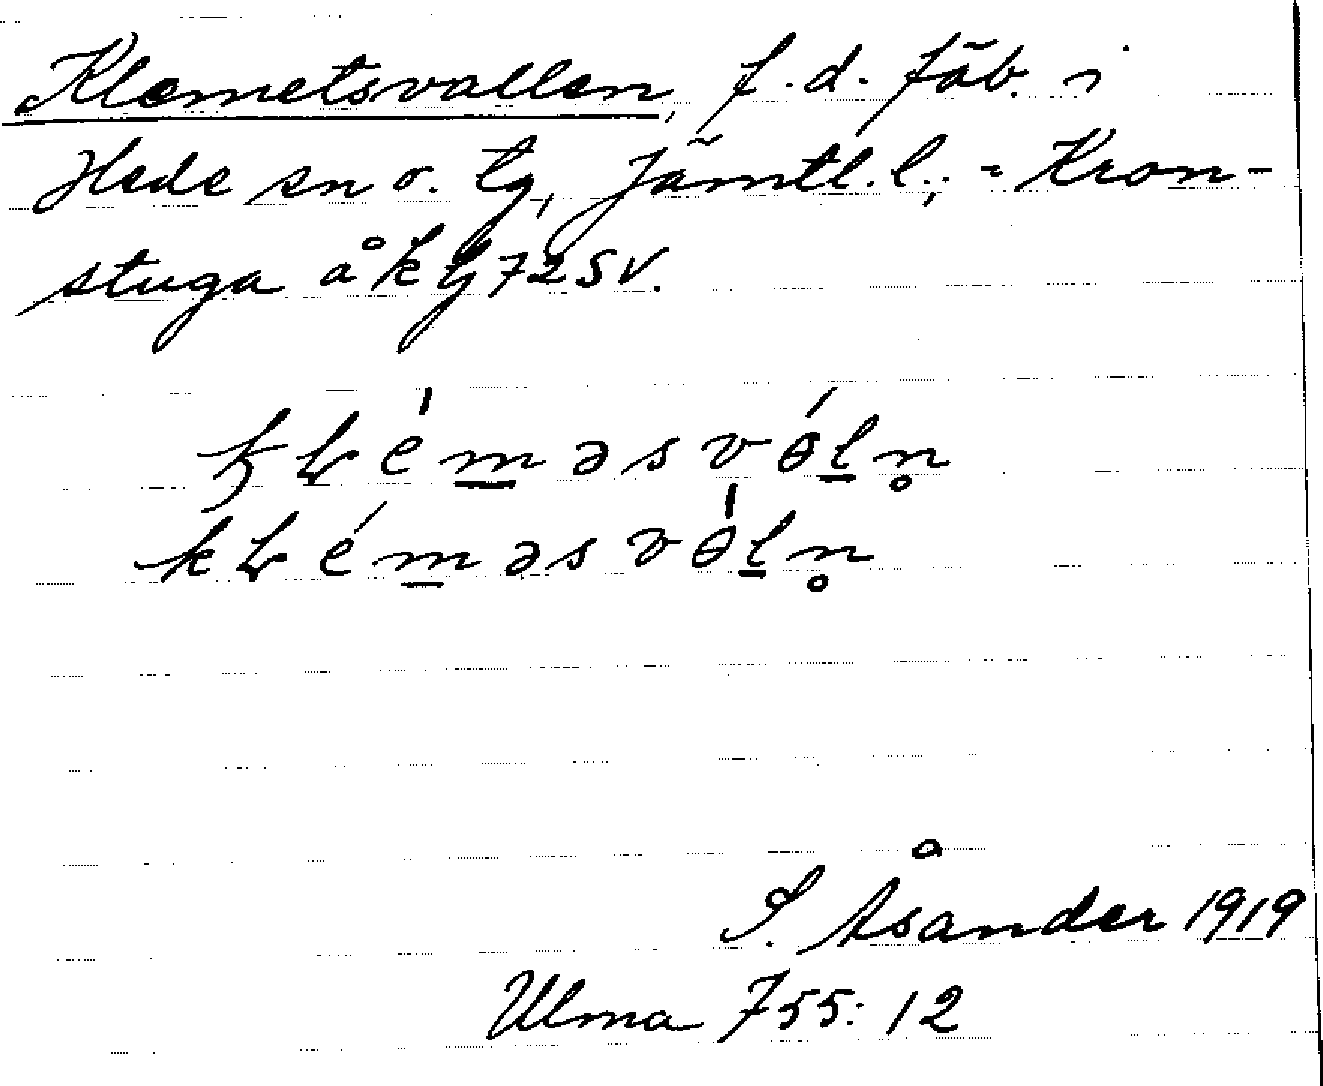 Klemetsvallen, f.d. fäb. i
Hede sn o. tg, Jämtl. l.; = Kron-
stuga å k tg 72 SV.
kɫéməsvɵ́ln̥
kɫéməsvɵ́ln̥
S. Åsander 1919
Ulma 755: 12